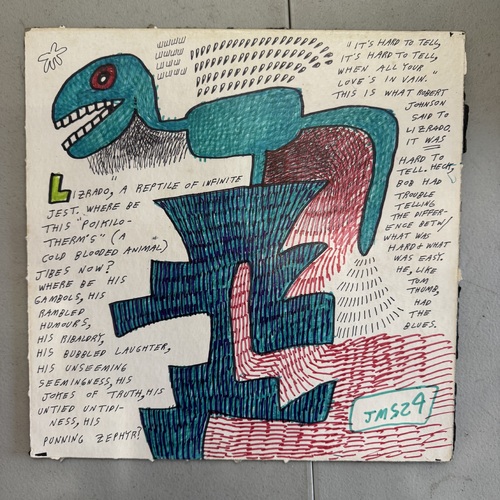 "IT'S HARD TO TELL,
IT'S HARD TO TELL,
WHEN ALL YOUR
LOVE'S IN VAIN."
THIS IS WHAT ROBERT
JOHNSON
SAID TO
LIZRADO.
IT WAS
HARD TO
TELL. HECK,
BOB HAD
TROUBLE
TELLING
THE DIFFER-
ENCE BETW/
WHAT WAS
HARD & WHAT
WAS EASY.
HE, LIKE
TOM
THUMB,
HAD
THE
BLUES.
LIZRADO, A REPTILE OF INFINITE
JEST. WHERE BE
THIS "POIKILO-
THERM'S" (A
COLD BLOODED ANIMAL)
JIBES NOW?
WHERE BE HIS
GAMBOLS, HIS
RAMBLED
HUMOURS,
HIS RIBALDRY,
HIS BUBBLED LAUGHTER,
HIS UNSEEMING
SEEMINGNESS, HIS
JOKES OF TRUTH, HIS
UNTIED UNTIDI-
NESS, HIS
PUNNING ZEPHYR?
JMS24